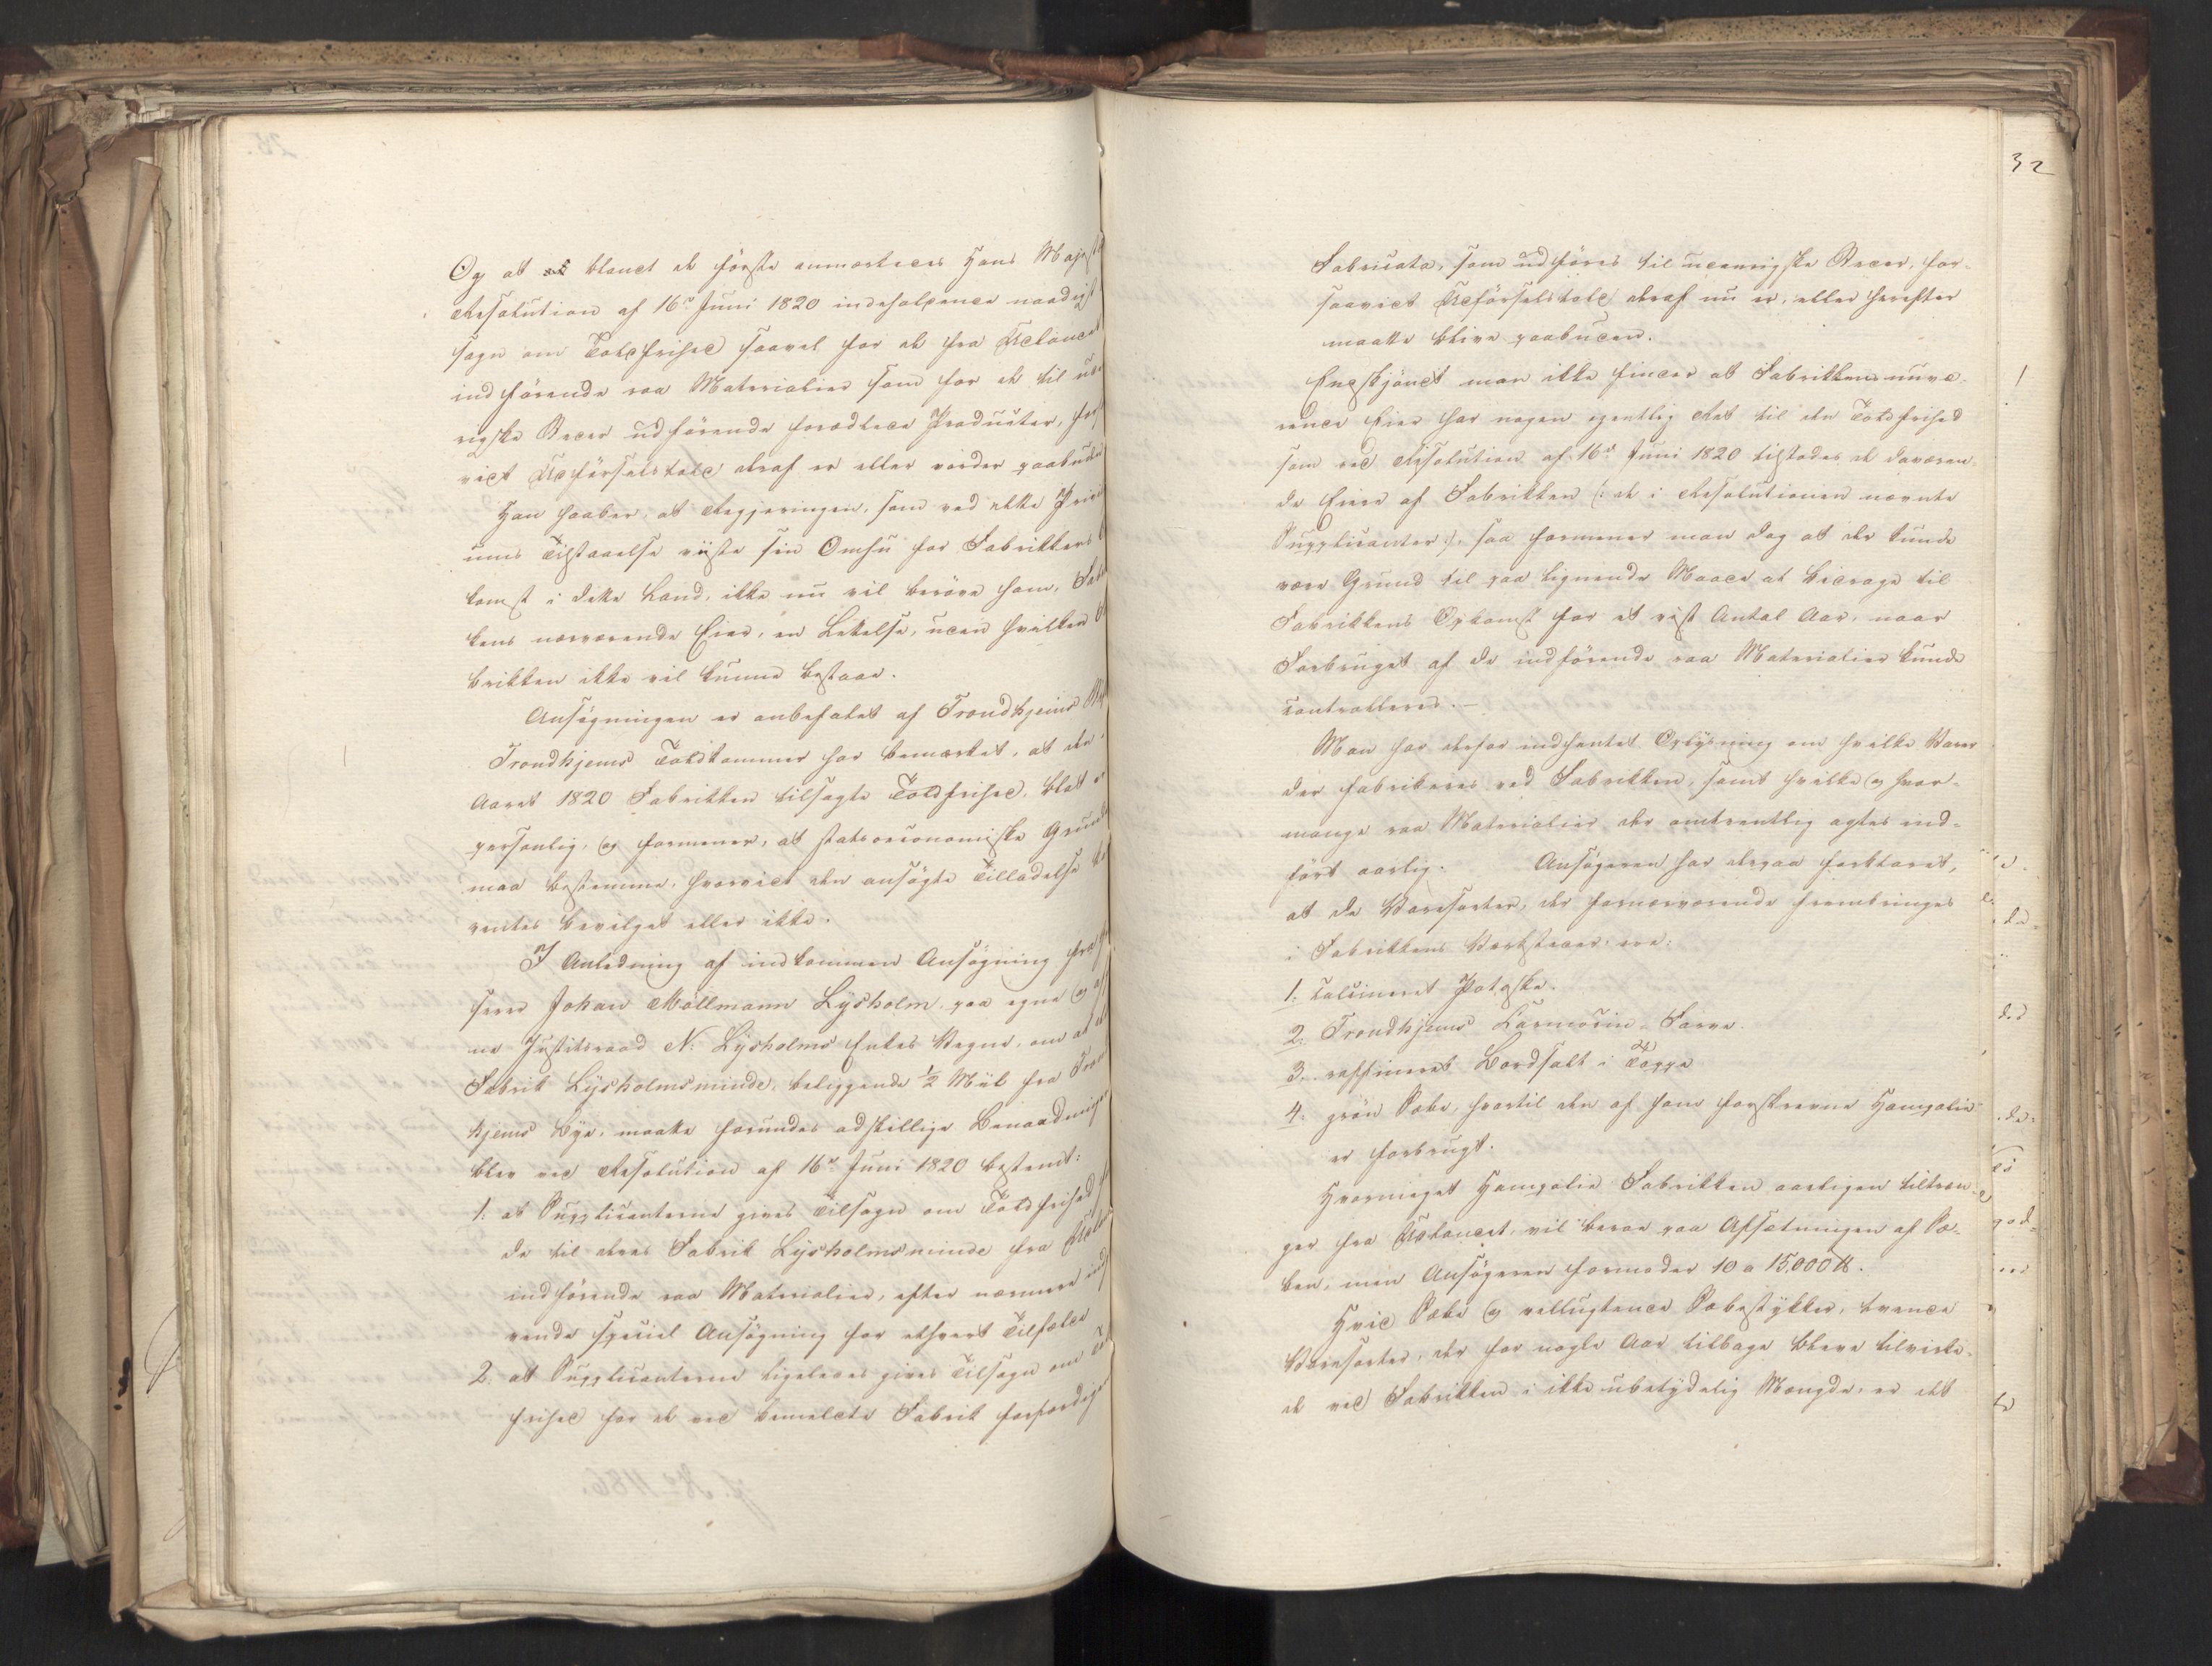 Og at blandt de første anmærkedes Hans Majest
Resolution af 16de Juni 1820 indeholdende naadigst
sagn om Toldfrihed saavel for de fra Udlandet
indførende raa Materialier som for de til uden
rigske Steder udførende forædlede Producter, for
vidt Udførselstold deraf er eller vorder paabuden
Han haaber, at Regjeringen, som ved dette
ums Tilstaaelse viiste sin Omhu for Fabrikkens
komst i dette Land, ikke nu vil berøve ham, Fabri
kens nærværende Eier, en Lettelse, uden hvilken
brikken ikke vil kunne bestaae.
Ansøgningen er anbefalet af Trondhjems
Trondhjems Toldkammer har bemærket, at den
Aaret 1820 Fabrikken tilsagte Toldfrihed, blot
personlig, og formener, at statsoeconomiske Grunde
maa bestemme, hvorvidt den ansøgte Tilladelse
ventes bevilget eller ikke.
I Anledning af indkommen Ansøgning fra
serer Johan Møllmann Lysholm paa egne og
ne Justitsraad N. Lysholms Enkes Vegne, om at
Fabrik Lysholmsminde, beliggende 1/2 Miil fra Tron
hjems Bye, maatte forundes adskillige Benaadninger
blev ved Resolution af 16de Juni 1820 bestemt:
1: at Supplicanterne gives Tilsagn om Toldfrihed
de til deres Fabrik Lysholmsminde fra
indførende raa Materialier, efter nærmere
vende speciel Ansøgning for ethvert Tilfælde
2. at Supplicanterne ligeledes gives Tilsagn om
frihed for de ved bemeldte Fabrik forfærdige
32
Fabricata, som udføres til udenrigske Steder, for-
saavidt Udførselstold deraf nu er, eller herefter
maatte blive paabuden.
Endskjøndt man ikke finder at Fabrikkens nuvæ-
rende Eier har nogen egentlig Ret til den Toldfrihed
som ved Resolution af 16de Juni 1820 tilstodes de daværen-
de Eiere af Fabrikken (: de i Resolutionen nævnte
Supplicanter :), saa formener man dog at der kunde
være Grund til paa lignende Maade at bidrage til
Fabrikkens Opkomst for et vist Antal Aar, naar
Forbruget af de indførende raa Materialier kunde
controlleres.-
Man har derfor indhentet Oplysning om hvilke Varer
der fabrikeres ved Fabrikken, samt hvilke og hvor-
mange raa Materialier der omtrentlig agtes ind-
ført aarlig. Ansøgeren har derpaa forklaret,
at de Varesorter, der fornærværende frembringes
i Fabrikkens Værksteder, ere:
1: calcineret Potaske.
2. Trondhjems Carmosin-Farve.
3. raffineret Bordsalt i Toppe
4. grøn Sæbe, hvortil den af ham forskrevne Hampolie
er forbrugt.
Hvormeget Hampolie Fabrikken aarligen tiltræn-
ger fra Udlandet, vil beroe paa Afsætningen af Sæ-
ben, men Ansøgeren formoder 10 a 15,000 ℔.
Hvid Sæbe og vellugtende Sæbestykker, tvende
Varesorter, der for nogle Aar tilbage bleve tilvirke-
de ved Fabrikken i ikke ubetydelig Mængde, er det